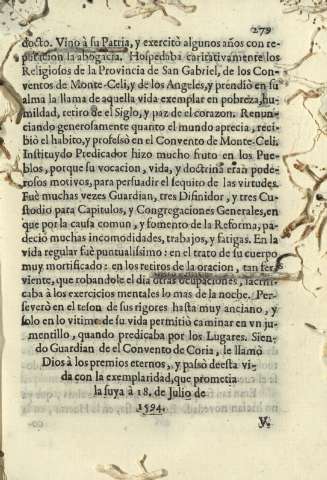 279
docto. Vino à su Patria, y exercitò algunos años con re-
putacion la abogacia. Hospedaba caritativamente los
Religiosos de la Provincia de San Gabriel, de los Con-
ventos de Monte-Celi, y de los Angeles, y prendiò en su
alma la llama de aquella vida exemplar en pobreza, hu-
mildad, retiro de el Siglo, y paz de el corazon. Renun-
ciando generosamente quanto el mundo aprecia, reci-
biò el habito, y professò en el Convento de Monte-Celi.
Instituydo Predicador hizo mucho fruto en los Pue-
blos, porque su vocacion, vida, y doctrina eran pode-
rosos motivos, para persuadir el sequito de las virtudes.
Fuè muchas vezes Guardian, tres Difinidor, y tres Cu-
stodio para Capitulos, y Congregaciones Generales, en
que por la causa comun, y fomento de la Reforma, pa-
deciò muchas incomodidades, trabajos, y fatigas. En la
vida regular fuè puntualissimo: en el trato de su cuerpo
muy mortificado: en los retiros de la oracion, tan fer-
viente, que robandole el dia otras ocupaciones, sacrifi-
caba à los exercicios mentales lo mas de la noche. Per-
severò en el teson de sus rigores hasta muy anciano, y
solo en lo vltimo de su vida permitiò caminar en vn ju-
mentillo, quando predicaba por los Lugares. Sien-
do Guardian de el Convento de Coria, le llamò
Dios à los premios eternos, y passò de esta vi-
da con la exemplaridad, que prometia
la suya à 18. de Julio de
1594.
V.